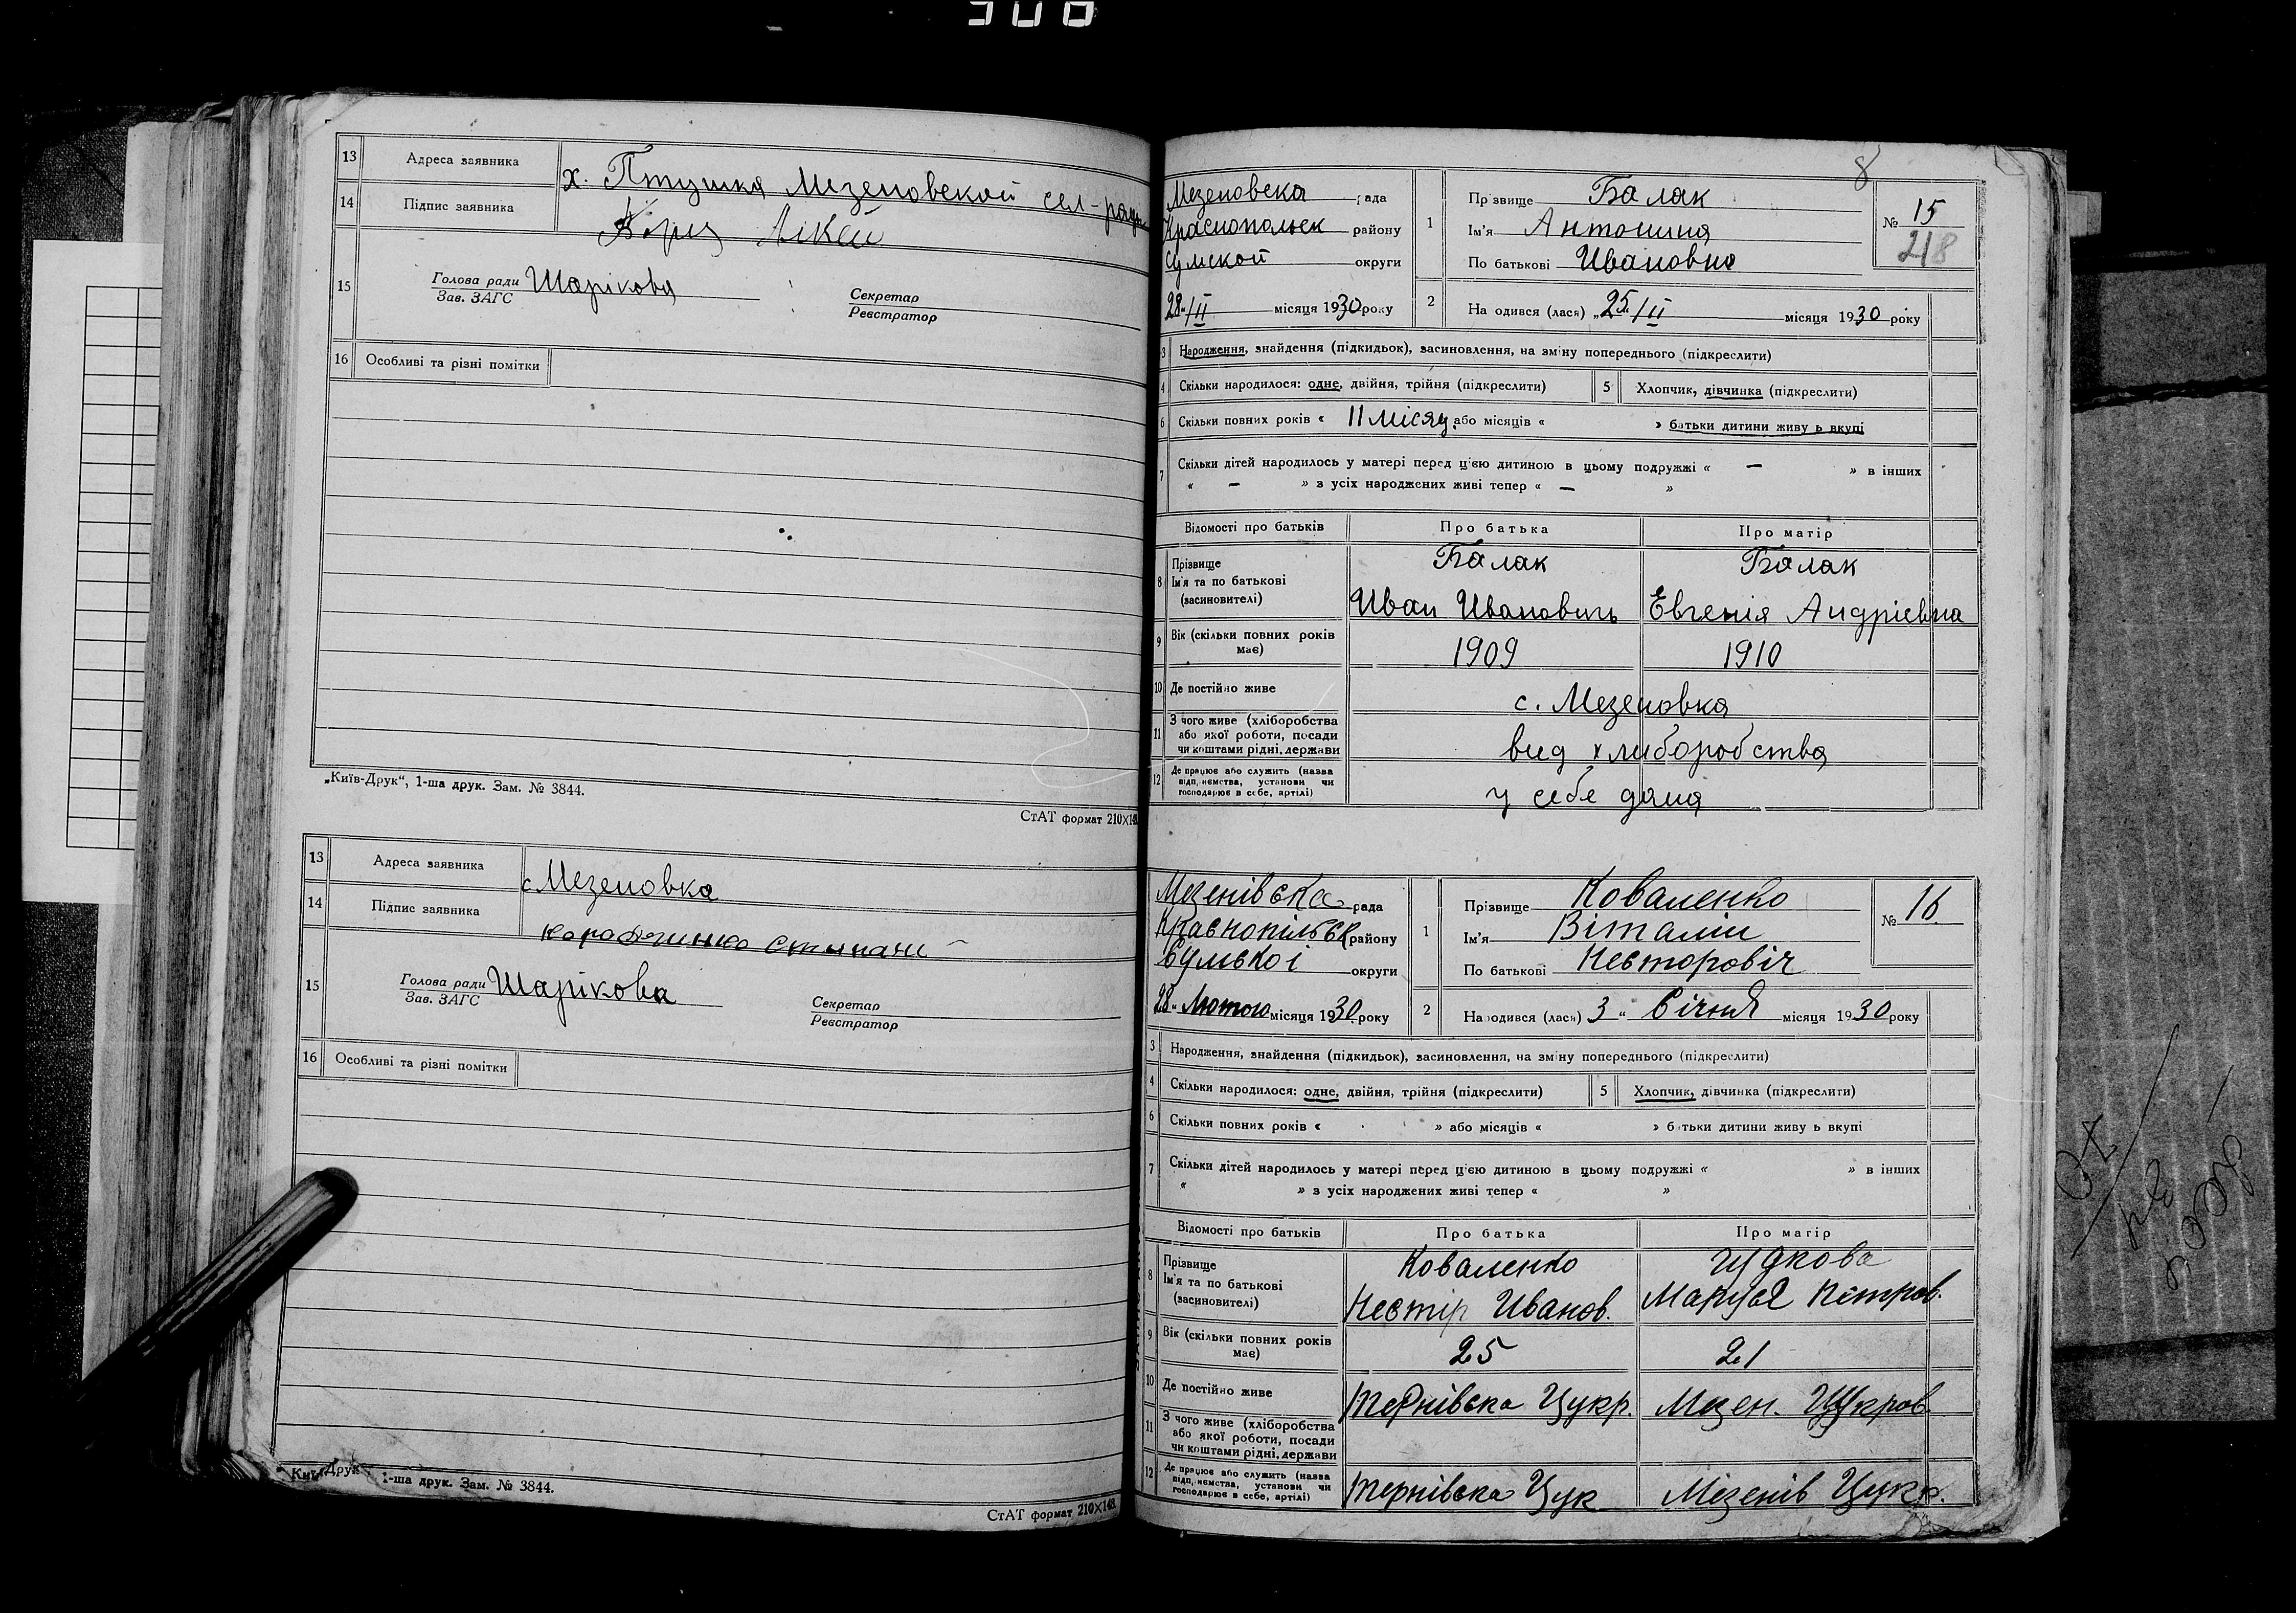 308
13 Адреса заявника х. Птушка Мезеповской сел-рады
14 Підпис заявника
15 Голова ради Шарікова
Зав. ЗАГС
Секретар
Реєстратор
16 Особливі та різні помітки
„Київ-Друк“, 1-ша друк. Зам. № 3844.
СтАТ формат 210×148
13 Адреса заявника с Мезеновка
14 Підпис заявника
15 Голова ради Шарікова
Зав. ЗАГС
Секретар
Реєстратор
16 Особливі та різні помітки
1-ша друк. Зам. № 3844.
СтАТ формат 210×148.
8
Мезеновска рада
Краснопольск району
Сумской округи
28/II місяця 1930 року
1 Прізвище Балак
Ім'я Антонина
По батькові Ивановна
№ 15
218
2 Народився (лася) „25“/II місяця 1930 року
3 Народження, знайдення (підкидьок), засиновлення, на зміну попереднього (підкреслити)
4 Скільки народилося: одне, двійня, трійня (підкреслити) 5 Хлопчик, дівчинка (підкреслити)
6 Скільки повних років « 11 місяц. або місяців « » батьки дитини живуть вкупі
7 Скільки дітей народилось у матері перед цією дитиною в цьому подружжі « — » в інших
« — » з усіх народжених живі тепер « — »
Відомості про батьків Про батька Про матір
8 Прізвище Балак Балак
Ім'я та по батькові
(засиновителі) Иван Иванович Евгения Андріевна
9 Вік (скільки повних років має) 1909 1910
10 Де постійно живе с. Мезеновка
11 З чого живе (хліборобства
або якої роботи, посади
чи коштами рідні, держави вид хлиборобства
12 Де працює або служить (назва
підприємства, установи чи
господарює в себе, артілі) у себе дома
Мезенівска рада
Краснопільск району
Сумської округи
28 „ Лютого місяця 1930 року
1 Прізвище Коваленко
Ім'я Віталій
По батькові Несторовіч
№ 16
2 Народився (лася) 3 “ Січня місяця 1930 року
3 Народження, знайдення (підкидьок), засиновлення, на зміну попереднього (підкреслити)
4 Скільки народилося: одне, двійня, трійня (підкреслити) 5 Хлопчик, дівчинка (підкреслити)
6 Скільки повних років « » або місяців « » батьки дитини живуть вкупі
7 Скільки дітей народилось у матері перед цією дитиною в цьому подружжі « » в інших
« » з усіх народжених живі тепер « »
Відомості про батьків Про батька Про матір
8 Прізвище Коваленко Гудкова
Ім'я та по батькові
(засиновителі) Нестір Иванов. Маруся Петров.
9 Вік (скільки повних років має) 25 21
10 Де постійно живе Тернівска Цукр. Мезен. Цукров.
11 З чого живе (хліборобства
або якої роботи, посади
чи коштами рідні, держави
12 Де працює або служить (назва
підприємства, установи чи
господарює в себе, артілі) Тернівска Цук Мезенів Цукр.